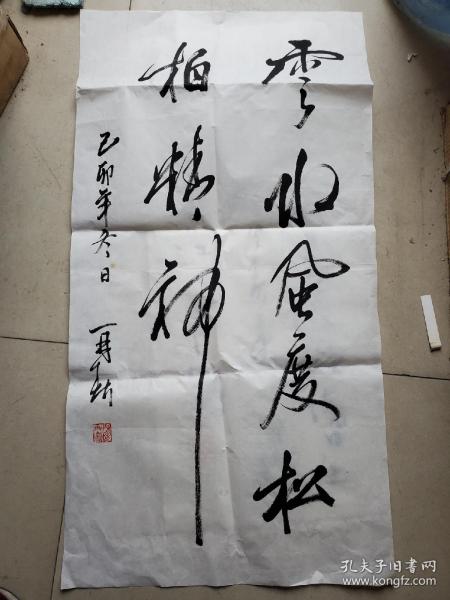 雲水風度松
柏精神
己卯年冬日
孔夫子旧书网
www.kongfz.com